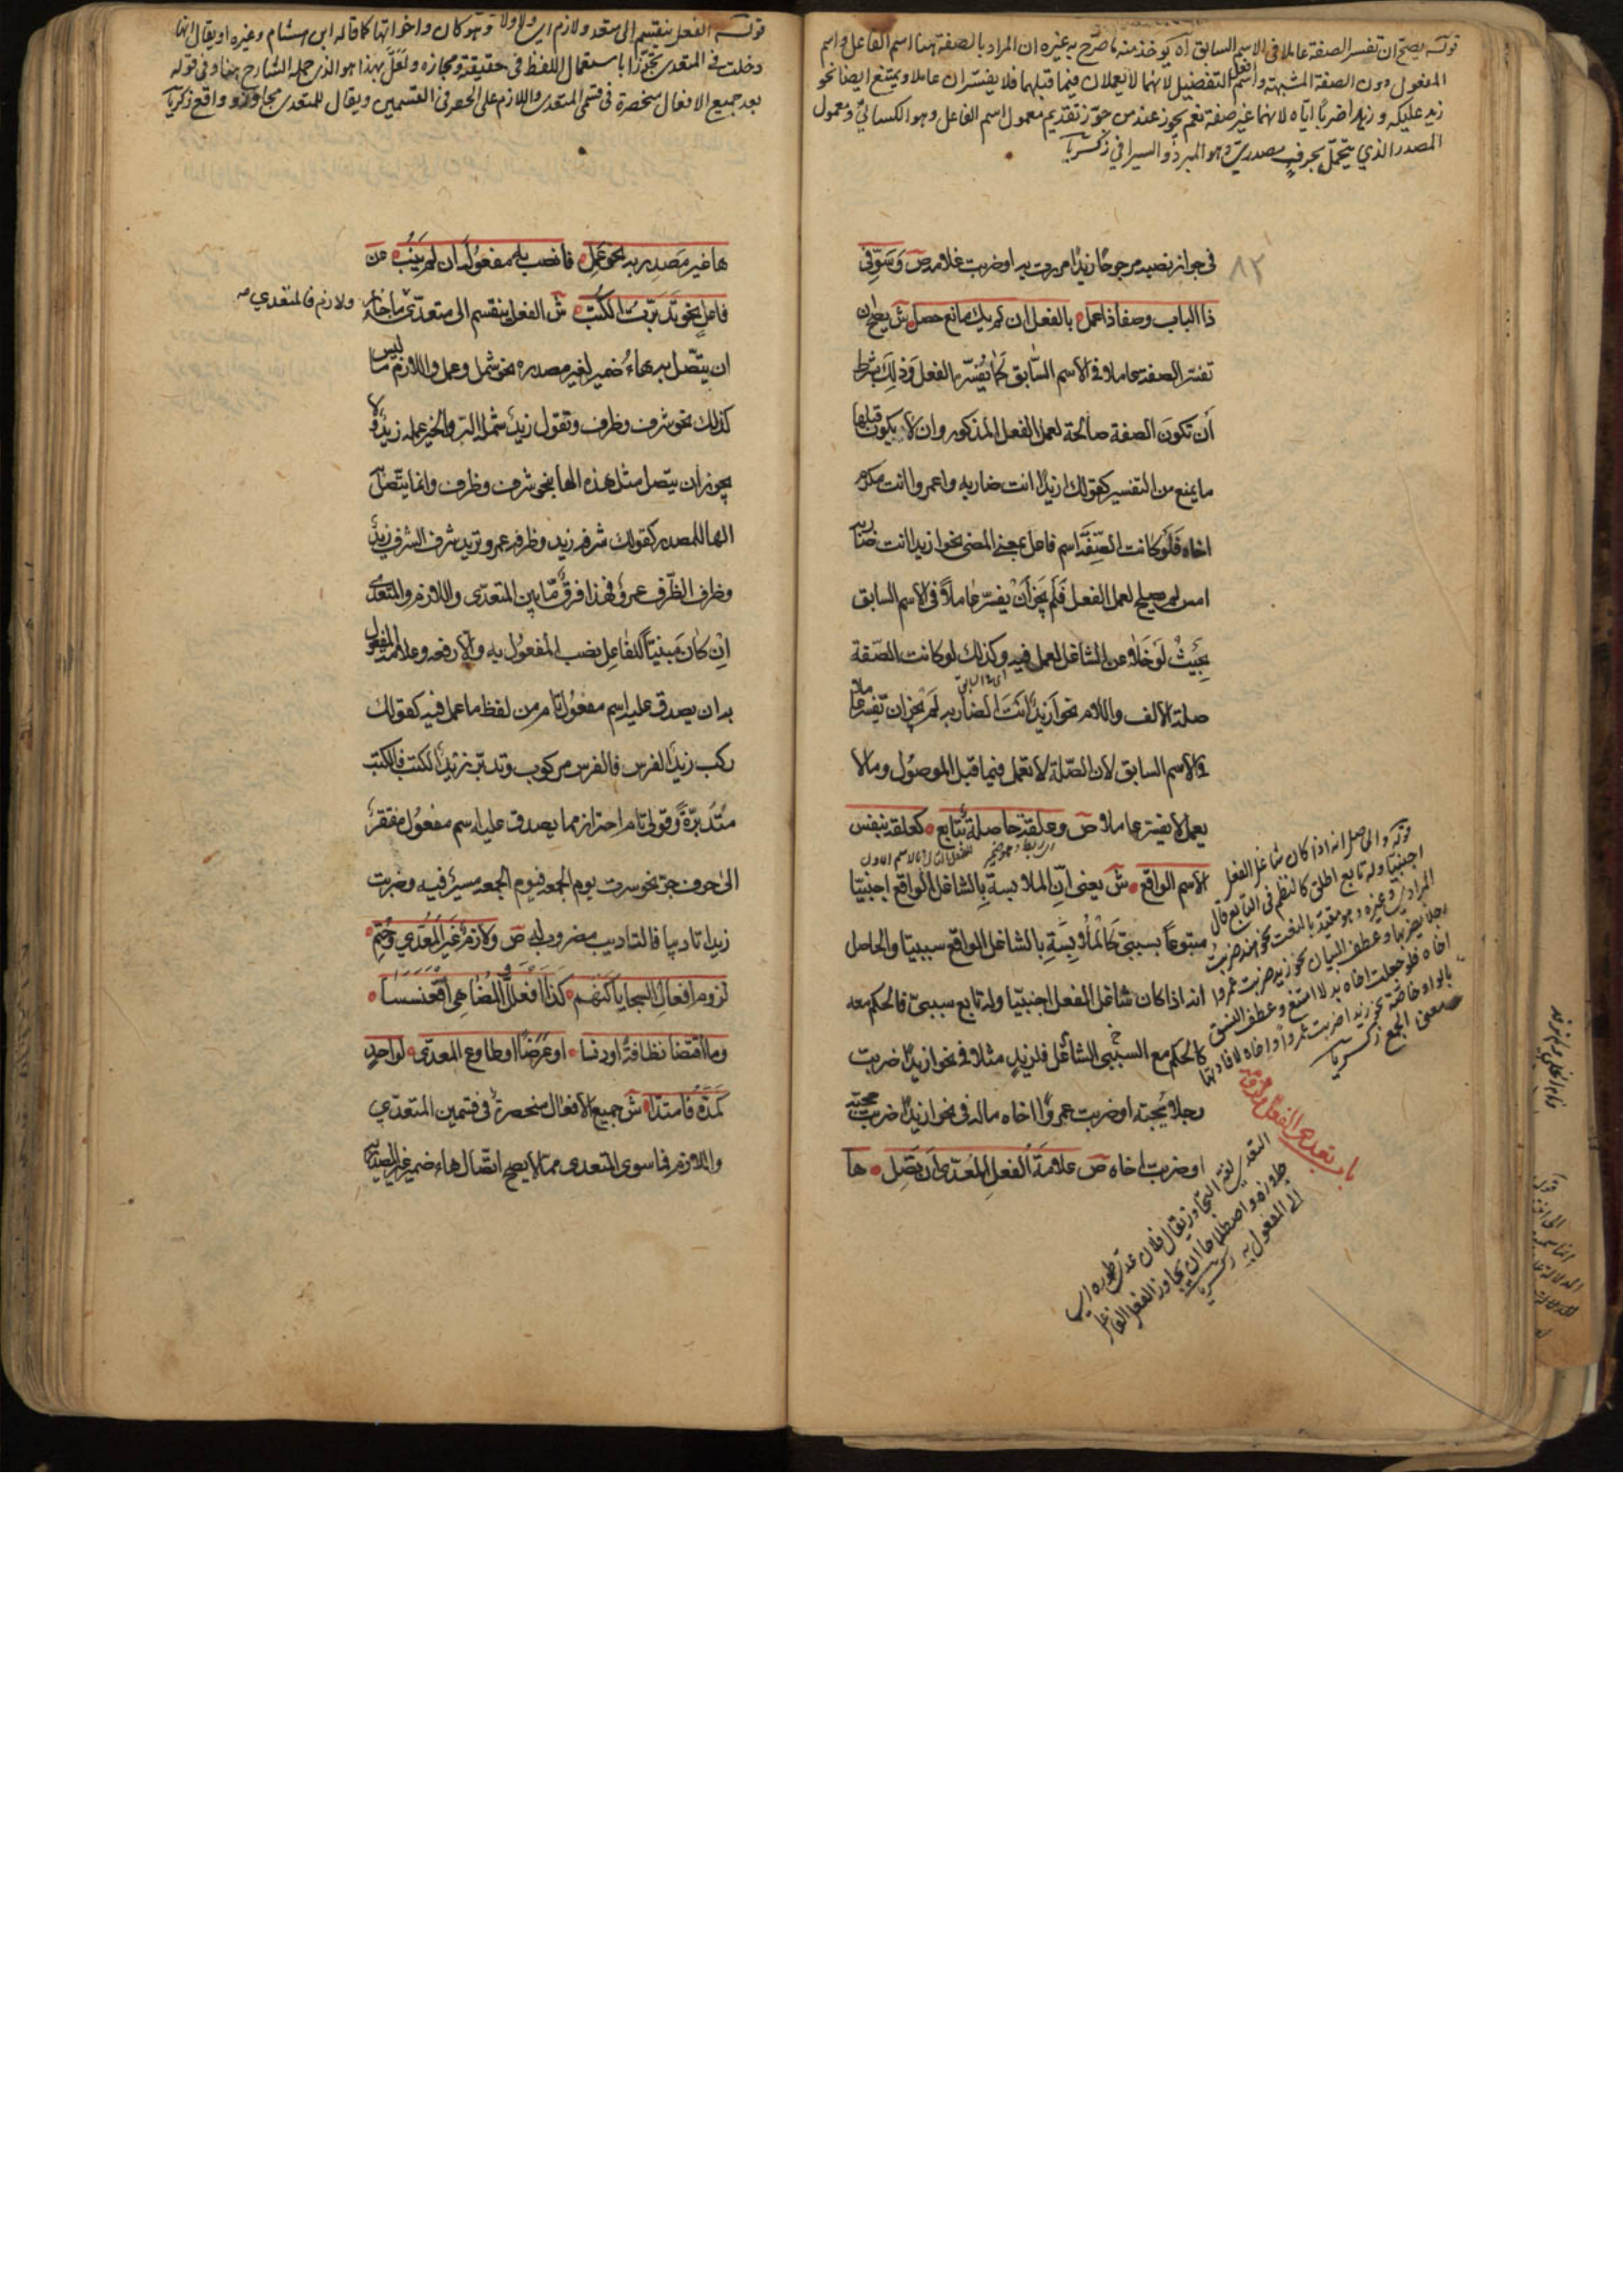 قوله يصح ان تفسر الصفة عاملا في الاسم السابق آه يوخذ منه ما صرح به غيره ان المراد بالصفة هنا اسم الفاعل واسم
المفعول دون الصفة المشبهة واسم التفضيل لانهما لا يعملان فيما قبلهما فلا يفسران عاملا ويمتنع ايضا نحو
زيد عليكه و زيدا ضربا اياه لانهما غير صفة نعم يجوز عند من جوز تقديم معمول اسم الفعل وهو الكسائي ومعمول
المصدر الذي ينحل بحرف مصدري وهو المبرد والسيرافي زكريا
٨٢
في جواز نصبه مرجوحا زيدا مررت به او ضربت غلامه ص وسوّ في
ذا الباب وصفا ذا عمل بالفعل ان لم يك مانع حصل ش يصح ان
تفسر الصفة عاملا في الاسم السابق كما يفسره الفعل وذلك بشرط
أن تكون الصفة صالحة لعمل الفعل المذكور وان لا يكون قبلها
ما يمنع من التفسير كقولك ازيدا انت ضاربه واعمروا انت مكرم
اخاه فلو كانت الصفة اسم فاعل بمعنى المضى نحو ازيدا انت ضاربه
امس لم يصلح لعمل الفعل فلم يجز أن يفسر عاملاً في الاسم السابق
بحيث لو خلا عن الشاغل لعمل فيه وكذلك لو كانت الصفة
صلة الالف واللام نحو ازيدا انت الضاربه لم يجز ان تفسر عاملا
في الاسم السابق لان الصلة لا تعمل فيما قبل الموصول وما لا
يعمل لا يفسر عاملا ص وعلقة حاصلة بتابع كعلقة بنفس
الاسم الواقع ش يعني ان الملابسة بالشاغل الواقع اجنبيا
متبوعاً بسببي كالملابسة بالشاغل الواقع سببيا والحاصل
انه اذا كان شاغل الفعل اجنبيا وله تابع سببي فالحكم معه
كالحكم مع السببي الشاغل فلزيد مثلا في نحو ازيدا ضربت
رجلا يحبه او ضربت عمروا اخاه ماله في نحو ازيدا ضربت محبه
او ضربت اخاه ص علامة الفعل المعدى ان تصل ها
قوله والحاصل انه اذا كان شاغل الفعل
اجنبيا وله تابع اطلق كالنظم في التابع قال
المرادي وغيره وهو مقيد بالنعت نحو هند ضربت
رجلا يضربها وعطف البيان نحو زيد ضربت عمروا
اخاه فلو جعلت اخاه بدلا امتنع وعطف النسق
بالواو خاصة نحو زيدا ضربت عمروا واخاه لافادتها
معنى الجمع زكريا
باب تعدي الفعل ولزومه
التعدي لغة التجاوز يقال فلان عدى طوره اي
جاوزه واصطلاحا ان يجاوز الفعل الفاعل
الى المفعول به زكريا
قوله الفعل ينقسم الى متعد ولازم اي ولا ولا وهو كان واخواتها كما قاله ابن هشام وغيره او يقال انها
دخلت في المتعدي تجوزا باستعمال اللفظ في حقيقته ومجازه ولعل هذا هو الذي حمله الشارح هنا وفي قوله
بعد جميع الافعال منحصرة في قسمي المتعدي واللازم على الحصر في القسمين ويقال للمتعدي مجاوز و واقع زكريا
ها غير مصدر به نحو عمل فانصب به مفعوله ان لم ينب عن
فاعل نحو تدبرت الكتب ش الفعل ينقسم الى متعدّى ما جاز
ولازم فالمتعدي
ان يتصل به هاء ضمير لغير مصدره نحو شمل وعمل واللازم ما ليس
كذلك نحو شرف وظرف وتقول زيد شمله البر والخير عمله زيد ولا
يجوز ان يتصل مثل هذه الها بنحو شرف وظرف وانما يتصل به
الها للمصدر كقولك شرفه زيد وظرفه عمرو تريد شرف الشرف زيد
وظرف الظرف عمرو فهذا فرق ما بين المتعدى واللازم والمتعدى
ان كان مبنياً للفاعل نصب المفعول به والا رفعه وعلامة المفعول
به ان يصدق عليه اسم مفعول تام من لفظ ما عمل فيه كقولك
ركب زيد الفرس فالفرس مركوب وتدبر زيد الكتب فالكتب
متدبرة وقولي تام احتراز مما يصدق عليه اسم مفعول مفتقر
الى حرف جر نحو سرت يوم الجمعه فيوم الجمعه مسير فيه وضربت
زيدا تاديبا فالتاديب مضروب له ص ولازم غير المعدي وحتم
لزوم افعال السجايا كنهم كذا افعلل والمضاهي اقعنسسا
وما اقتضا نظافة او دنسا او عرضا او طاوع المعدى لواحد
كمده فامتدا ش جميع الافعال منحصرة في قسمين المتعدي
واللازم فما سوى المتعدى مما لا يصح اتصال هاء ضمير غير المصدر به